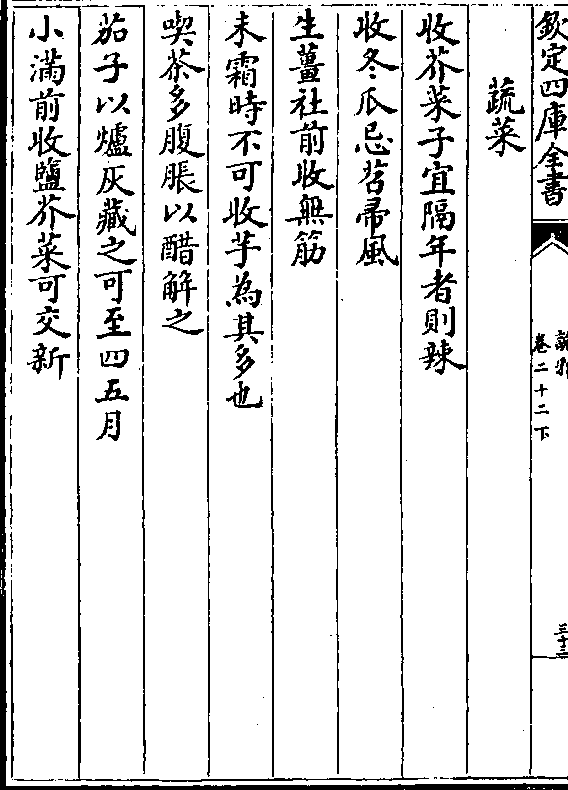 欽定四庫全書
說郛
卷二十二下
三十三
蔬菜
收芥菜子宜隔年者則辣
收冬瓜忌苕帚風
生薑社前收無筋
未霜時不可收芋為其多也
喫茶多腹脹以醋解之
茄子以爐灰藏之可至四五月
小滿前收鹽芥菜可交新